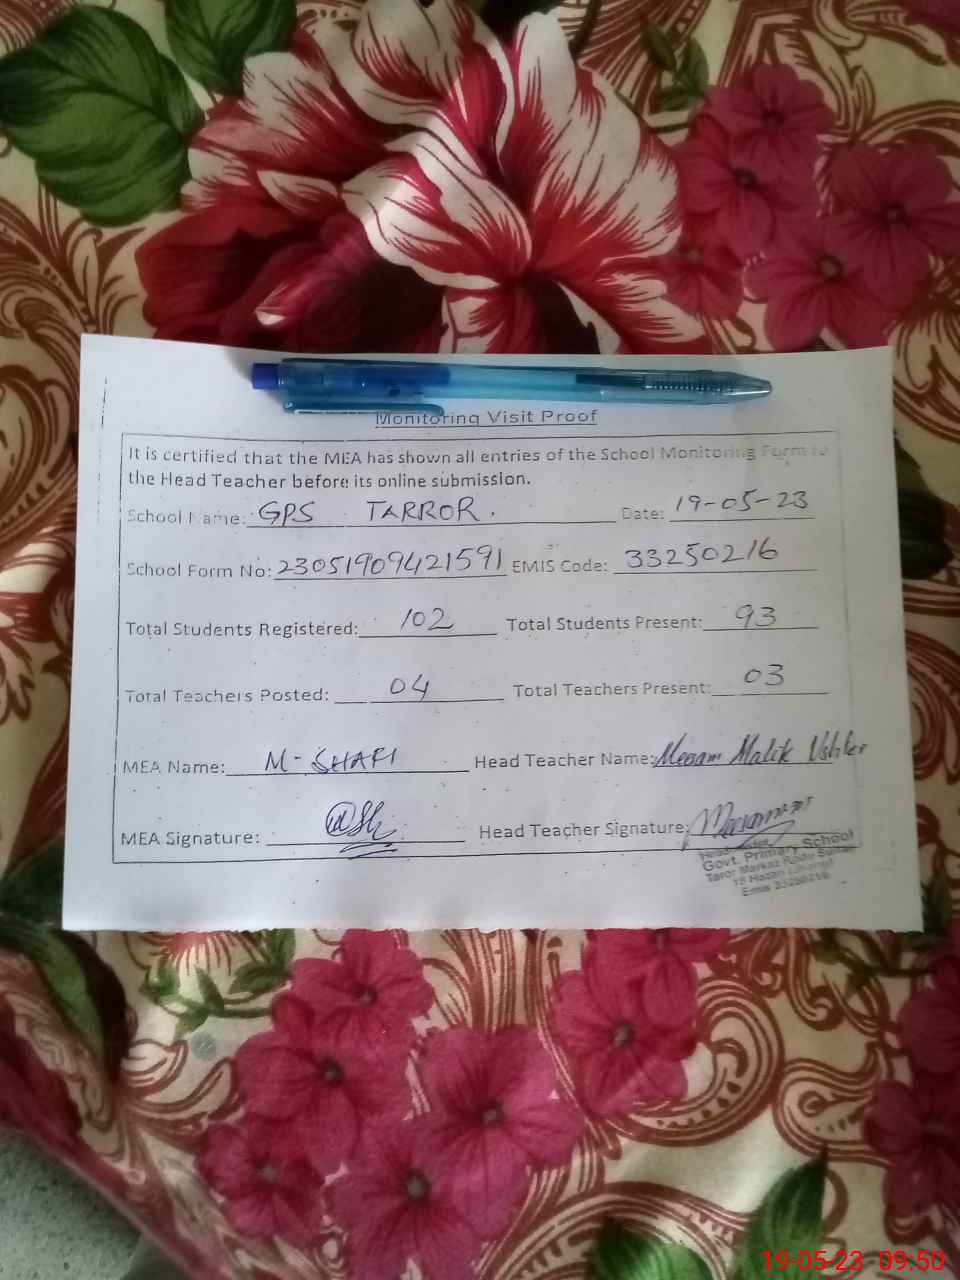 Monitoring Visit Proof
It is certified that the MEA has shown all entries of the School Monitoring Form to
the Head Teacher before its online submission.
School Name: GPS TARROR. Date: 19-05-23
School Form No: 23051909421591 EMIS Code: 33250216
Total Students Registered: 102 Total Students Present: 93
Total Teachers Posted: 04 Total Teachers Present: 03
MEA Name: M-SHAFI Head Teacher Name: Malik
MEA Signature: Head Teacher Signature:
Head
Govt. Primary School
Taror Markaz
Hazari
Emis 33250216
19-05-23 09:50